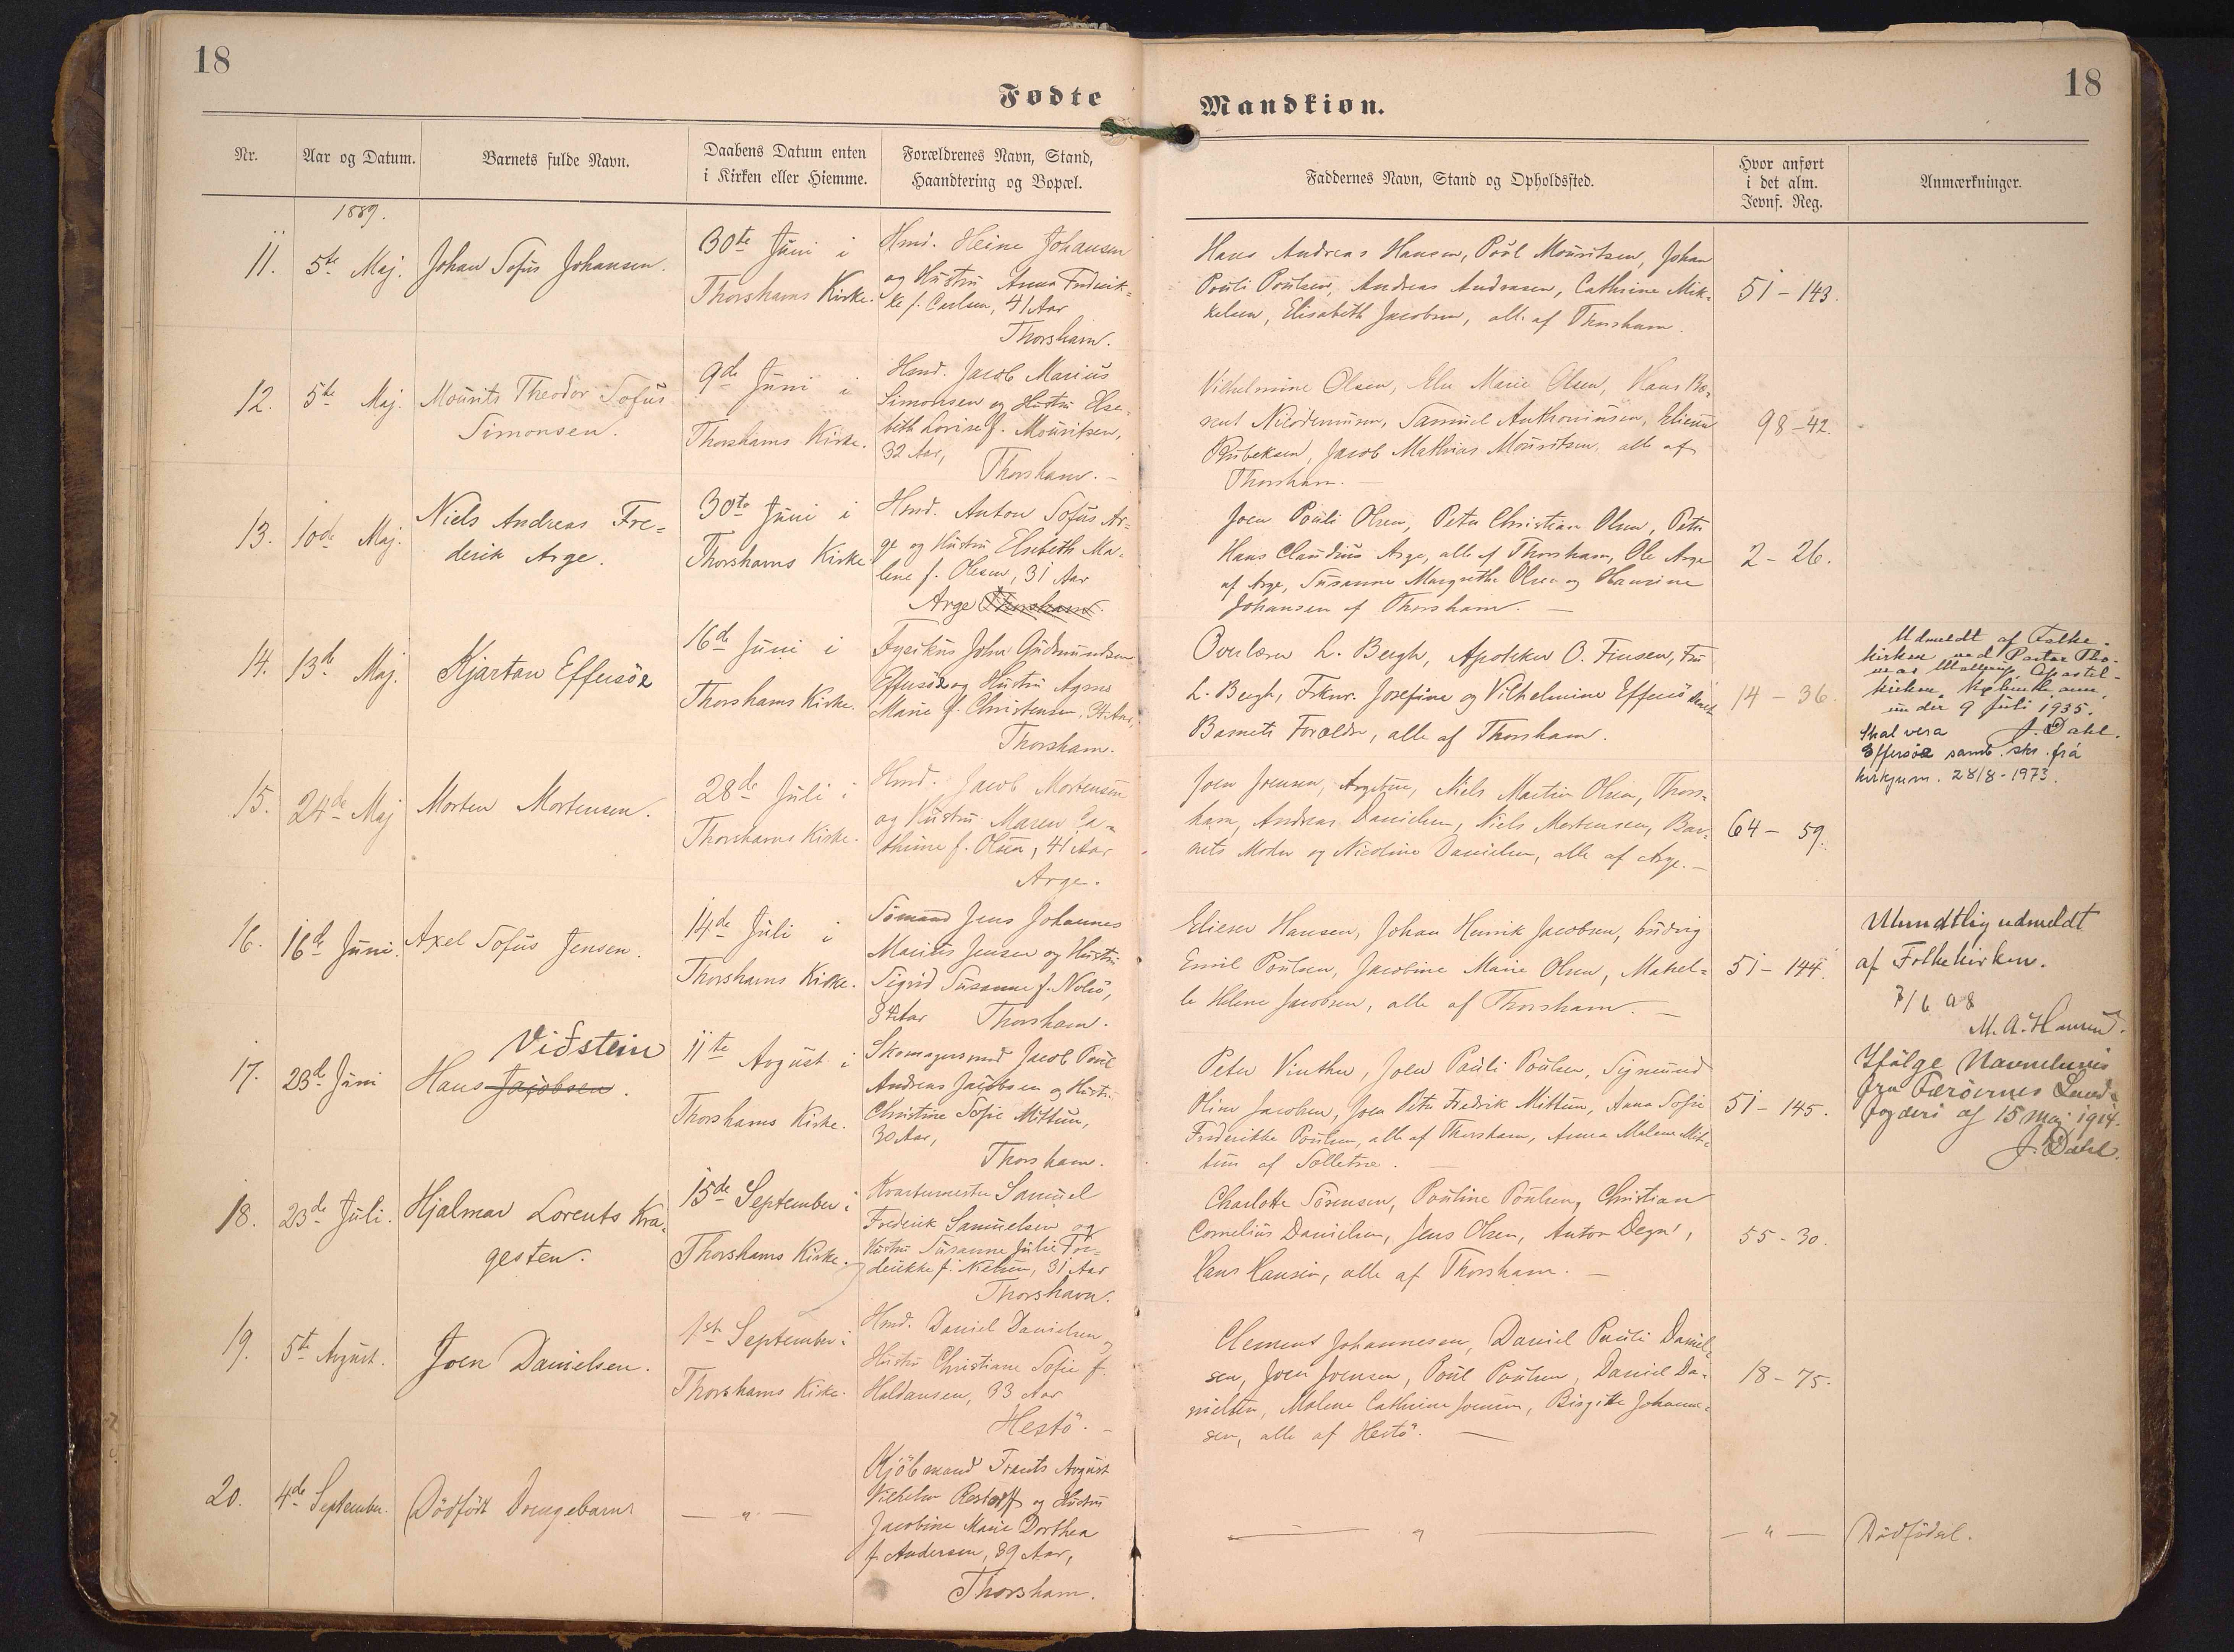 18
18
Fødte
Mandkiøn.
Nr.
Aar og Datum.
Barnets fulde Navn.
Daabens Datum enten
i Kirken eller Hiemme.
Forældrenes Navn, Stand,
Haandtering og Bopæl.
Faddernes Navn, Stand og Opholdssted.
Hvor anført
i det alm.
Jevnf. Reg.
Anmærkninger.
1889.
11.
5te Maj.
Johan Sofus Johansen.
30te Juni i
Thorshavns Kirke.
Hmd. Heine Johansen
og Hustru Anna Frederik-
ke f. Carlsen, 41 Aar
Thorshavn.
Hans Andreas Hansen, Poul Mouritsen, Johan
Pouli Poulsen, Andreas Andreasen, Cathrine Mik-
kelsen, Elisabeth Jacobsen, alle af Thorshavn.
51 - 143.
12.
5te Maj.
Mourits Theodor Sofus
Simonsen.
9de Juni i
Thorshavns Kirke.
Hmd. Jacob Marius
Simonsen og Hustru Else-
beth Lovise f. Mouritsen,
32 Aar,
Thorshavn. -
Vilhelmine Olsen, Else Marie Olsen, Hans
Nicodemussen, Samuel Anthoniussen,
Jacob Mathias Mouritsen, alle af
Thorshavn. -
98 - 42.
13.
10de Maj.
Niels Andreas Fre-
derik Arge.
30te Juni i
Thorshavns Kirke
Hmd. Anton Sofus Ar-
ge og Hustru Elsebeth Ma-
lene f. Olsen, 31 Aar
Arge Thorshavn.
Joen Pouli Olsen, Peter Christian Olsen, Peter
Hans Claudius Arge, alle af Thorshavn, Ole Arge
af Arge, Susanne Margrethe Olsen og Hansine
Johansen af Thorshavn. -
2 - 26.
14.
13de Maj.
Kjartan Effersöe
16de Juni i
Thorshavns Kirke.
Fysikus John Gudmundsen
Effersöe og Hustru Agnes
Marie f. Christensen, 34 Aar,
Thorshavn.
Overlærer L. Bergh, Apotheker O. Finsen, Fru
L. Bergh, Frknr. Josefine og Vilhelmine Effersö samt
Barnets Forældre, alle af Thorshavn.
14 - 36.
Udmeldt af Folke-
kirken ved Pastor Tho-
mas
under 9 Juli 1935.
J. Dahl.
Skal vera
Effersøe samb. skr. frá
kirkjum. 28/8-1973.
15.
24de Maj
Morten Mortensen.
28de Juli i
Thorshavns Kirke.
Hmd. Jacob Mortensen
og Hustru Maren Ca-
thrine f. Olsen, 41 Aar
Arge.
Joen Joensen, Argetue, Niels Martin Olsen, Thors-
havn, Andreas Danielsen, Niels Mortensen, Bar-
nets Moder og Nicoline Danielsen, alle af Arge. -
64 - 59.
16.
16de Juni.
Axel Sofus Jensen.
14de Juli i
Thorshavns Kirke.
Sömand Jens Johannes
Jensen og Hustru
Sigrid Susanne f. Nolsö,
34 Aar Thorshavn.
Elieser Hansen, Johan Henrik Jacobsen, Ludvig
Emil Poulsen, Jacobine Marie Olsen, Mabel-
le Helene Jacobsen, alle af Thorshavn. -
51 - 144.
Mundtlig udmeldt
af Folkekirken.
7/6 08
M. A. Hansen.
17.
23de Juni
Viðstein
Hans Jacobsen.
11te Avgust i
Thorshavns Kirke.
Skomagersvend Jacob Poul
Andreas Jacobsen og Hustru
Christine Sofie Mittun,
30 Aar,
Thorshavn.
Peter Vinther, Joen Pauli Poulsen, Sigmund
Oliver Jacobsen, Joen Peter Fredrik Mittun, Anna Sofie
Frederikke Poulsen, alle af Thorshavn, Anna Malene Mit-
tun af Solletrø.
51 - 145.
Ifølge Navnebevis
fra Færöernes Land-
fogderi af 15 maj 1914.
J. Dahl.
18.
23de Juli.
Hjalmar Lorents Kra-
gesten.
15de September i
Thorshavns Kirke.
Kvartermester Samuel
Frederik Samuelsen og
Hustru Susanne Julie Fre-
derikke f. Nielsen, 31 Aar
Thorshavn.
Charlotte Sörensen, Pouline Poulsen, Christian
Cornelius Danielsen, Jens Olsen, Anton Degn,
Hans Hansen, alle af Thorshavn. -
55 - 30.
19.
5te Avgust.
Joen Danielsen.
1ste September i
Thorshavns Kirke.
Hmd. Daniel Danielsen og
Hustru Christiane Sofie f.
Haldansen, 33 Aar
Hestö. -
Clement Johannesen, Daniel Pauli Daniel-
sen, Joen Joensen, Poul Poulsen, Daniel Da-
nielsen, Malene Cathrine Joensen, Birgitte Johanne-
sen, alle af Hestö. -
18 - 75.
20.
4de September.
Dödfödt Drengebarn
— " —
Kjöbmand Frants Avgust
Vilhelm Restorff og Hustru
Jacobine Marie Dorthea
f. Andersen, 39 Aar,
Thorshavn.
— " —
— " —
Dödfödsel.